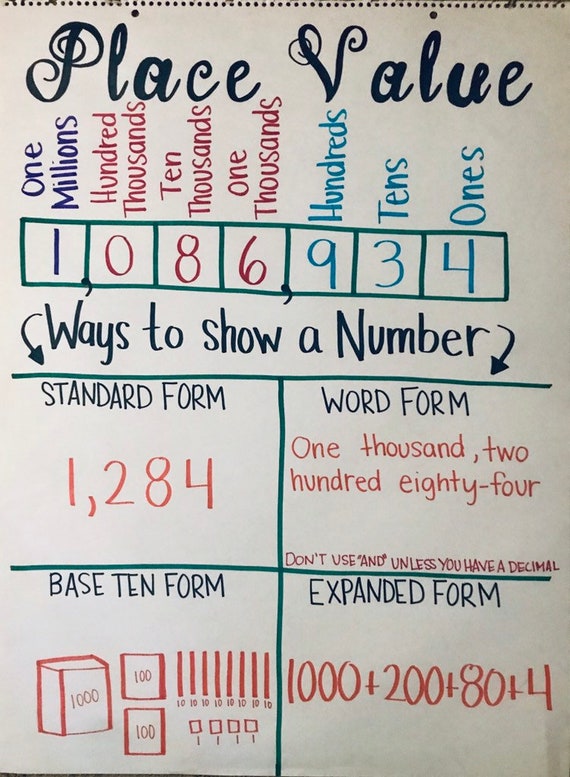 Place Value
One Millions
Hundred Thousands
Ten Thousands
One Thousands
Hundreds
Tens
Ones
1,086,934
Ways to show a Number
STANDARD FORM
1,284
WORD FORM
One thousand, two
hundred eighty-four
DON'T USE "AND" UNLESS YOU HAVE A DECIMAL
BASE TEN FORM
1000
100
100
10 10 10 10 10 10 10 10
1 1 1 1
EXPANDED FORM
1000+200+80+4